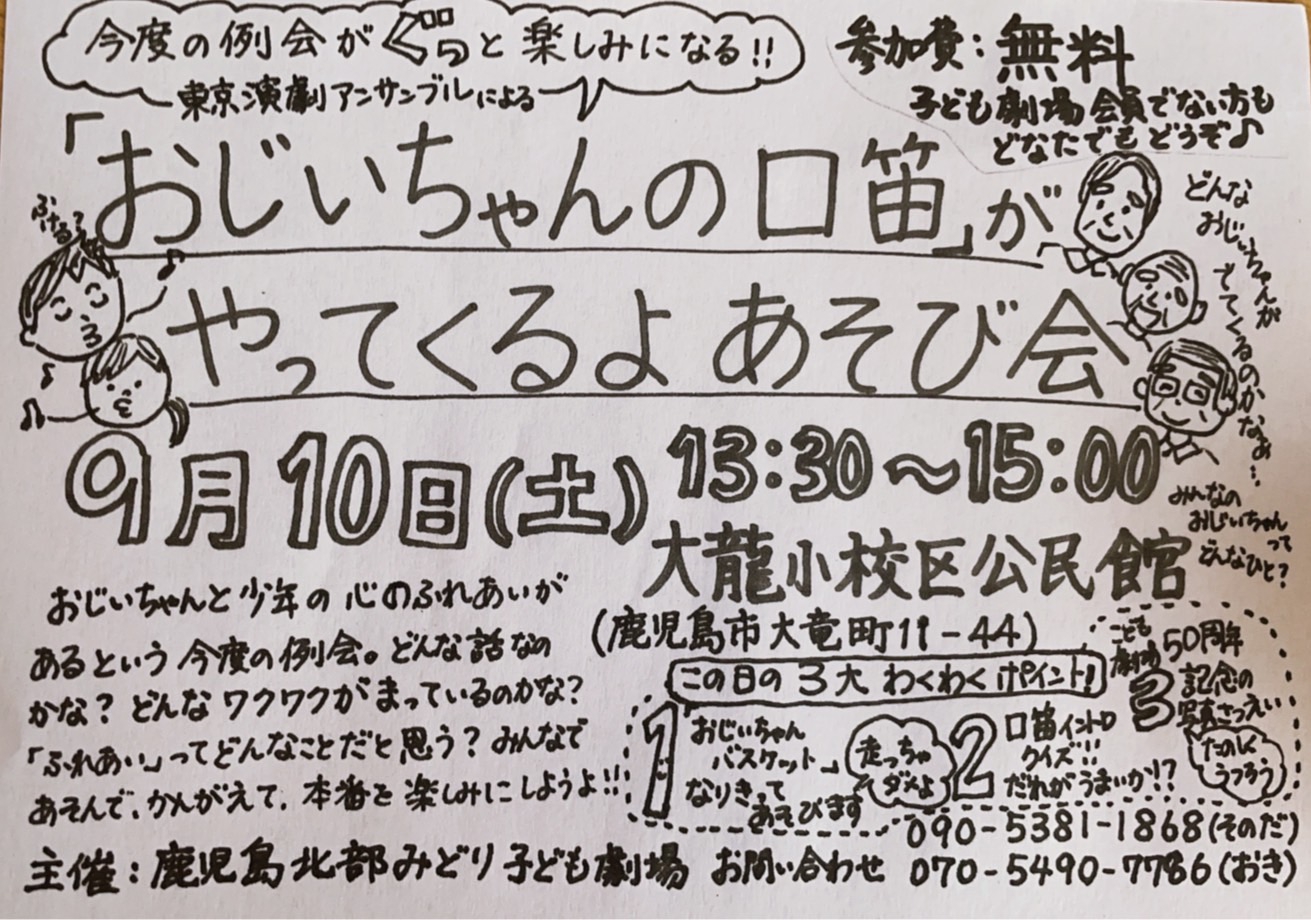 今度の例会がぐっと楽しみになる!!
東京演劇アンサンブルによる
参加費:無料
子ども劇場会員でない方も
どなたでもどうぞ♪
「おじいちゃんの口笛」が
やってくるよ あそび会
ふける?
どんな
おじいちゃんが
でてくるのかなぁ…
みんなの
おじいちゃん
って
どんなひと?
9月10日(土) 13:30~15:00
大龍小校区公民館
(鹿児島市大竜町11-44)
おじいちゃんと少年の心のふれあいが
あるという今度の例会。どんな話なの
かな?どんなワクワクがまっているのかな?
「ふれあい」ってどんなことだと思う?みんなで
あそんで、かんがえて、本番を楽しみにしようよ!!
この日の3大わくわくポイント!
1
おじいちゃん
バスケット」
なりきって
あそびます
走っちゃ
ダメよ
2
口笛イントロ
クイズ!!
だれがうまいか!?
3
こども
劇場
50周年
記念の
写真さつえい
たのしく
うつろう
主催:鹿児島北部みどり子ども劇場
お問い合わせ
090-5381-1868(そのだ)
070-5490-7786(おき)